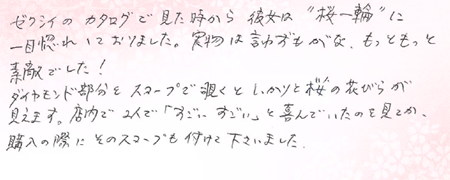 ゼクシィのカタログで見た時から彼女は"桜一輪"に
一目惚れしておりました。実物は言わずもがな、もっともっと
素敵でした!
ダイヤモンド部分をスコープで覗くとしっかりと桜の花びらが
見えます。店内で2人で「すごーいすごーい」と喜んでいたのを見てか、
購入の際にそのスコープも付けて下さいました。